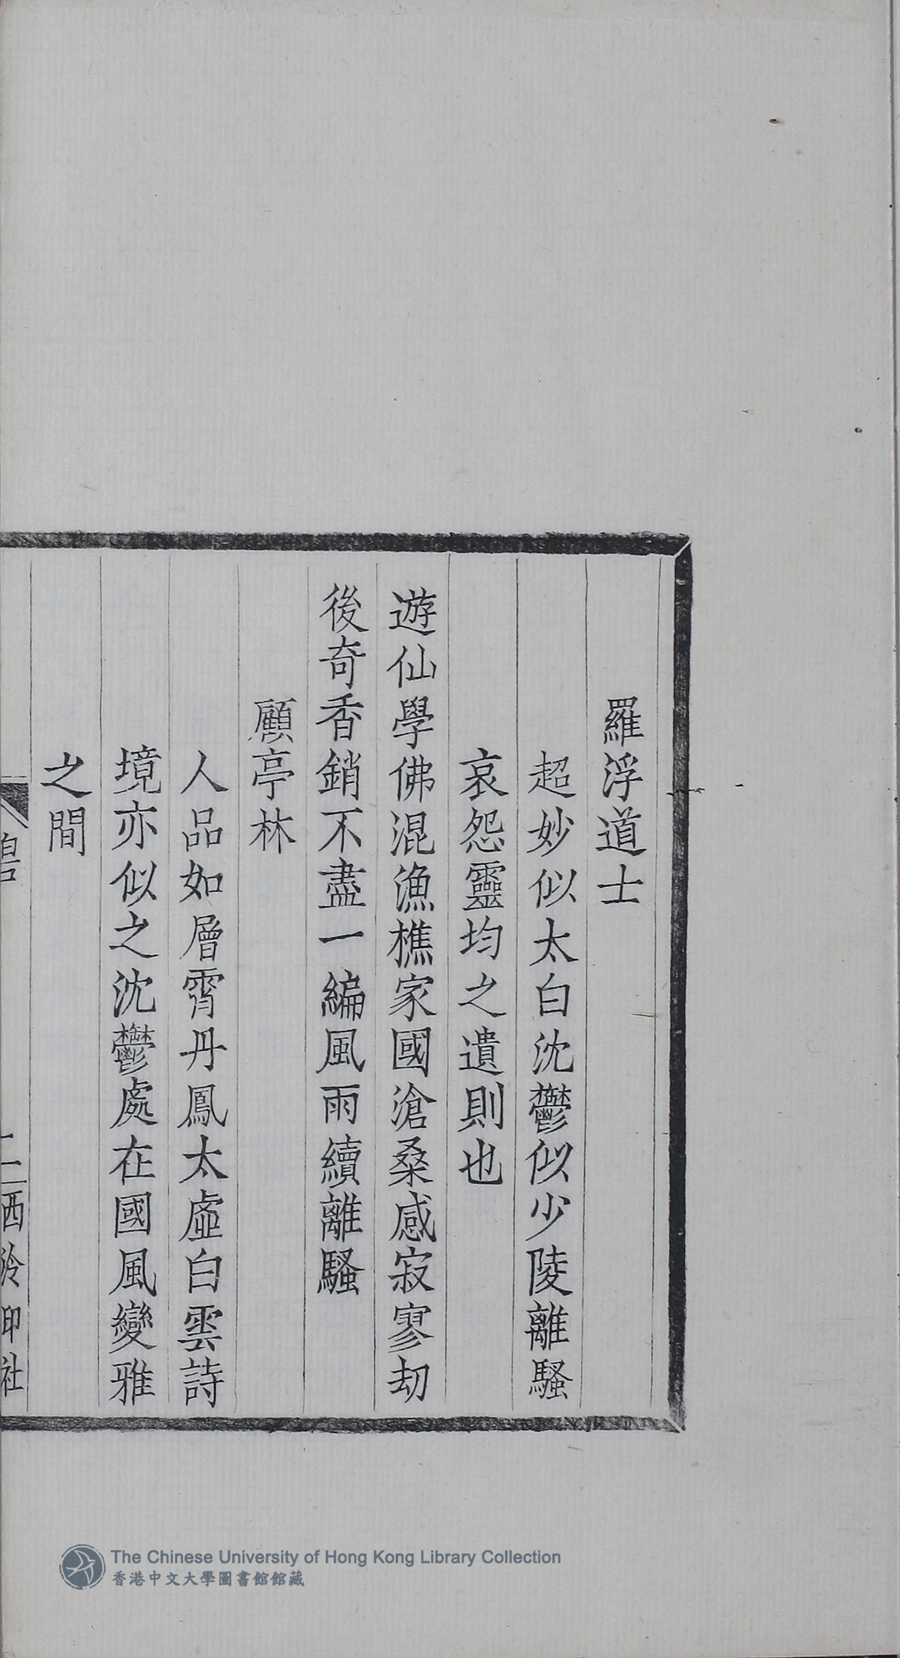 羅浮道士
超妙似太白沈鬱似少陵離騷
哀怨靈均之遺則也
遊仙學佛混漁樵家國滄桑感寂寥劫
後奇香銷不盡一編風雨續離騷
顧亭林
人品如層霄丹鳳太虛白雲詩
境亦似之沈鬱處在國風變雅
之間
二西泠印社
The Chinese University of Hong Kong Library Collection
香港中文大學圖書館館藏